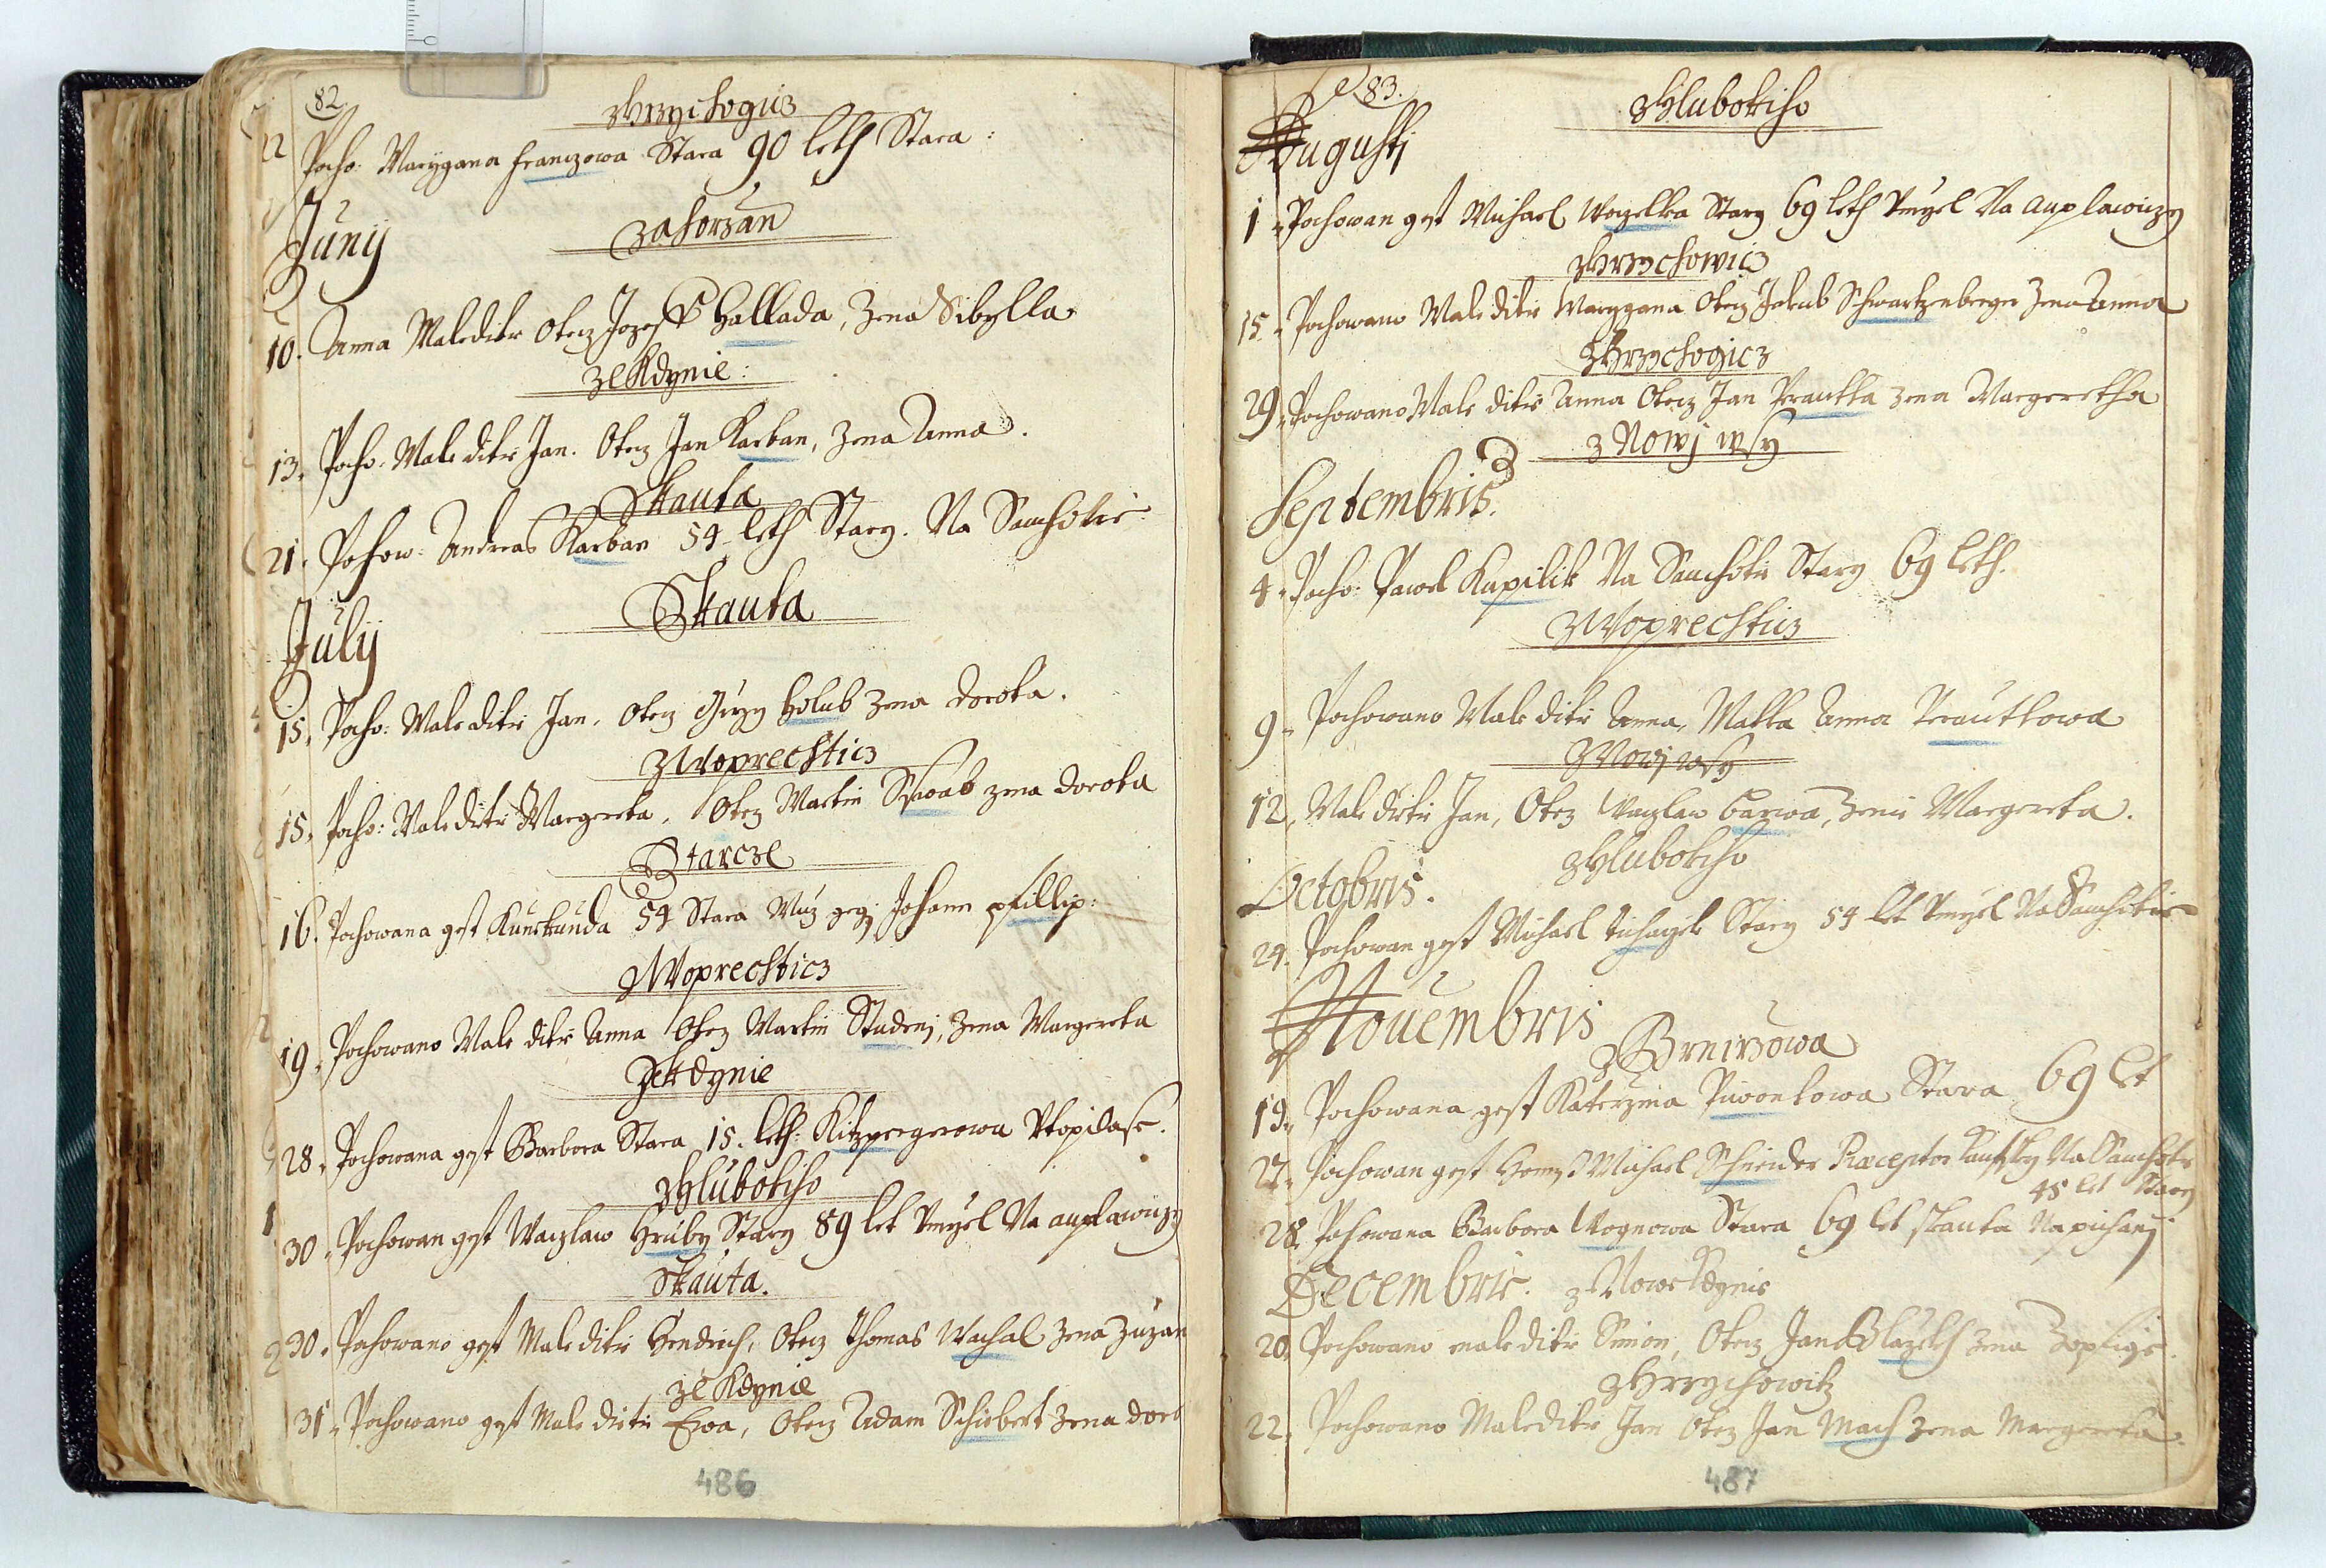 82.
zHrzychoguz
22 Pocho: Marÿgana Franczowa Stara 90 leth Stara:
Junÿ
zahorzan
10. Anna Male ditie Otecz Jozeff Hallada, zena Sibylla.
ze Kdynie:
13. Pocho: Male ditie Jan. Otecz Jan Karban, zena Anna.
Skauta
21. Pohow: Andreas Karban 54 leth Stary. Na Sauchotie:
Skauta
July
15. Pocho: Male ditie Jan, Otecz Girzy Holub zena dorota.
zWoprechticz
15. Pocho: Male ditie Margereta, Otecz Martin Schwab zena dorota
Starcze
16. Pochowana gest Kunekunda 54 Stara Muz gegj Johann pfillip:
zWoprechticz
19. Pochowano Male ditie Anna Otecz Martin Studenj, zena Margereta
ze Kdynie
28. Pochowana gest Barbora Stara 15. leth: Kitzpergerowa Vtopilase.
zHlubokiho
30. Pochowan gest Waczlaw Hruby Stary 89 let Vmrzel Na auplawiczy
Skauta.
30. Pochowano gest Male ditie Hendrich, Otecz Thomas Wachal zena Zuzan
ze Kdynie
31. Pochowano gest Male ditie Ewa, Otecz Adam Schiebert zena doro
486
83.
zHlubokiho
Augusti
1. Pochowan gest Michael Woczelka Stary 69 leth Vmrzel Na auplawiczy
zHrzychowicz
15. Pochowano Male ditie Marygana Otecz Jakub Schwartzenberger zena Anna
zHrzychogicz
29. Pochowano Male ditie Anna Otecz Jan Prautka zena Margeretha
z Nowj wsy
Septembris.
4. Pocho: Pawel Kupilik Na Sauchotie Stary 69 leth.
zWoprechticz
9. Pochowano Male ditie Anna, Matka Anna Prautkowa
zNowj wsy
12. Male ditie Jan, Otecz Waczlaw Barwa, zena Margereta.
zHlubokiho
Octobris.
24. Pochowan gest Michael Tichaczek Stary 54 let Vmrzel Na Sauchotie
Nouembris
zBrnirzowa
19. Pochowana gest Katerzina Piwonkowa Stara 69 let
27. Pochowan gest Michael Schneider Præceptor Kautsky Na Sauchotie
45 let Stary
28. Pohowana Barbora Wognowa Stara 69 let skauta Na pichanj
Decembris. z Nowe Kdynie
20. Pochowano male ditie Simon, Otecz Jan Blazeth zena Zophige.
zHrzychowitz
22. Pochowano Male ditie Jan Otecz Jan Mach zena Margereta.
487